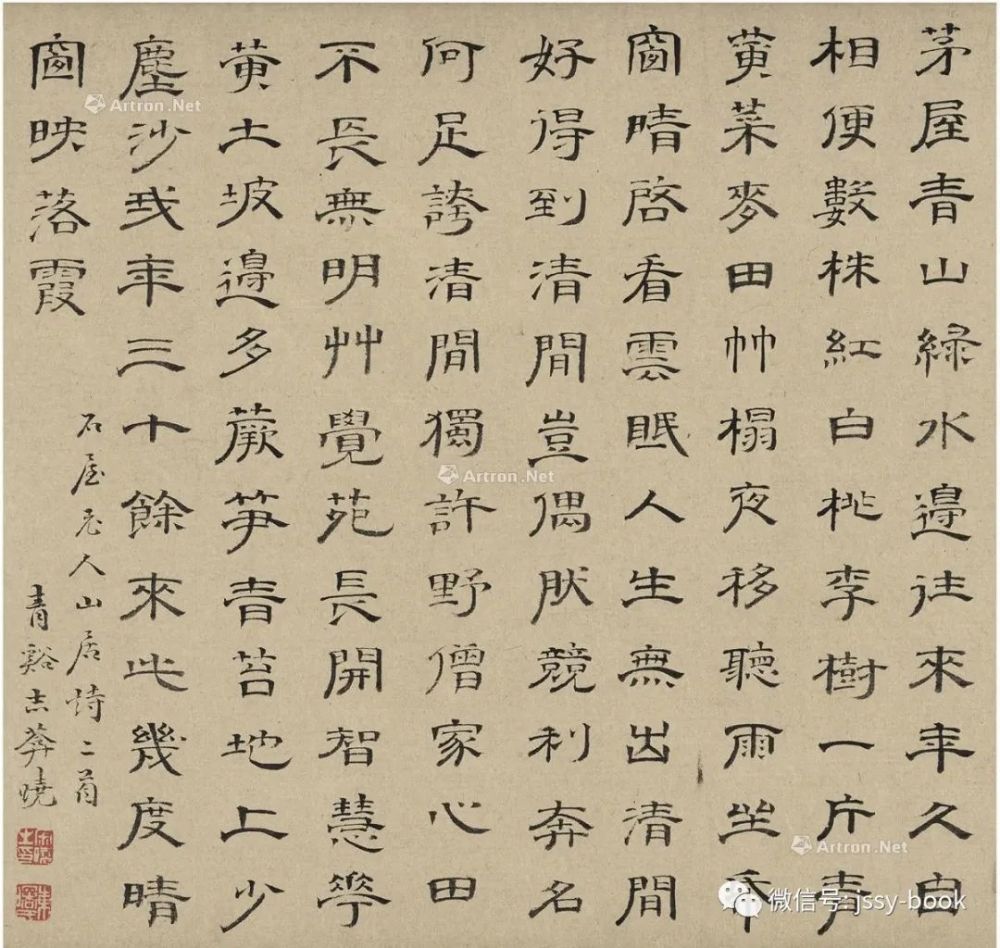 茅屋青山緑水邊往來年久自
相便數株紅白桃李樹一片青
黃菜麥田竹榻夜移聽雨坐帋
窗晴啓看雲眠人生無出清閒
好得到清閒豈偶肰競利奔名
何足誇清閒獨許野僧家心田
不長無明艸覺苑長開智慧華
黃土坡邊多蕨笋青苔地上少
塵沙我年三十餘來此幾度晴
窗映落霞
石屋老人山居詩二首
青谿曉
Artron.Net
Artron.Net
Artron.Net
微信号:jssy-book